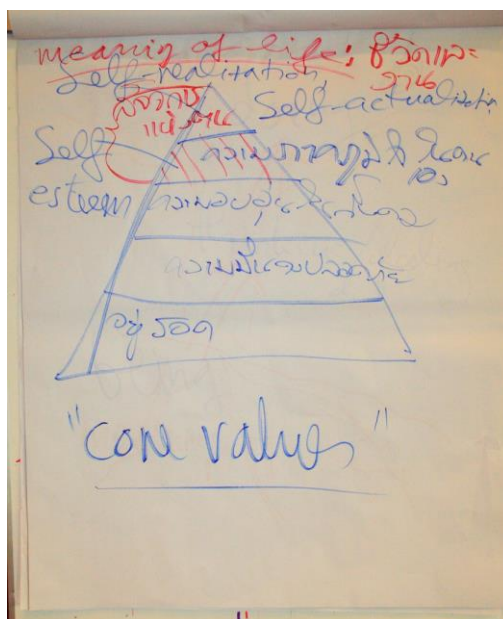 meaning of life: ชีวิตและ
งาน
Self-realization,
Self-actualization
แห่งตน
Self
esteem
ความภาคภูมิใจ ในตน
เอง
ความอบอุ่นในครอบครัว
ความมั่นคงปลอดภัย
อยู่รอด
"core values"